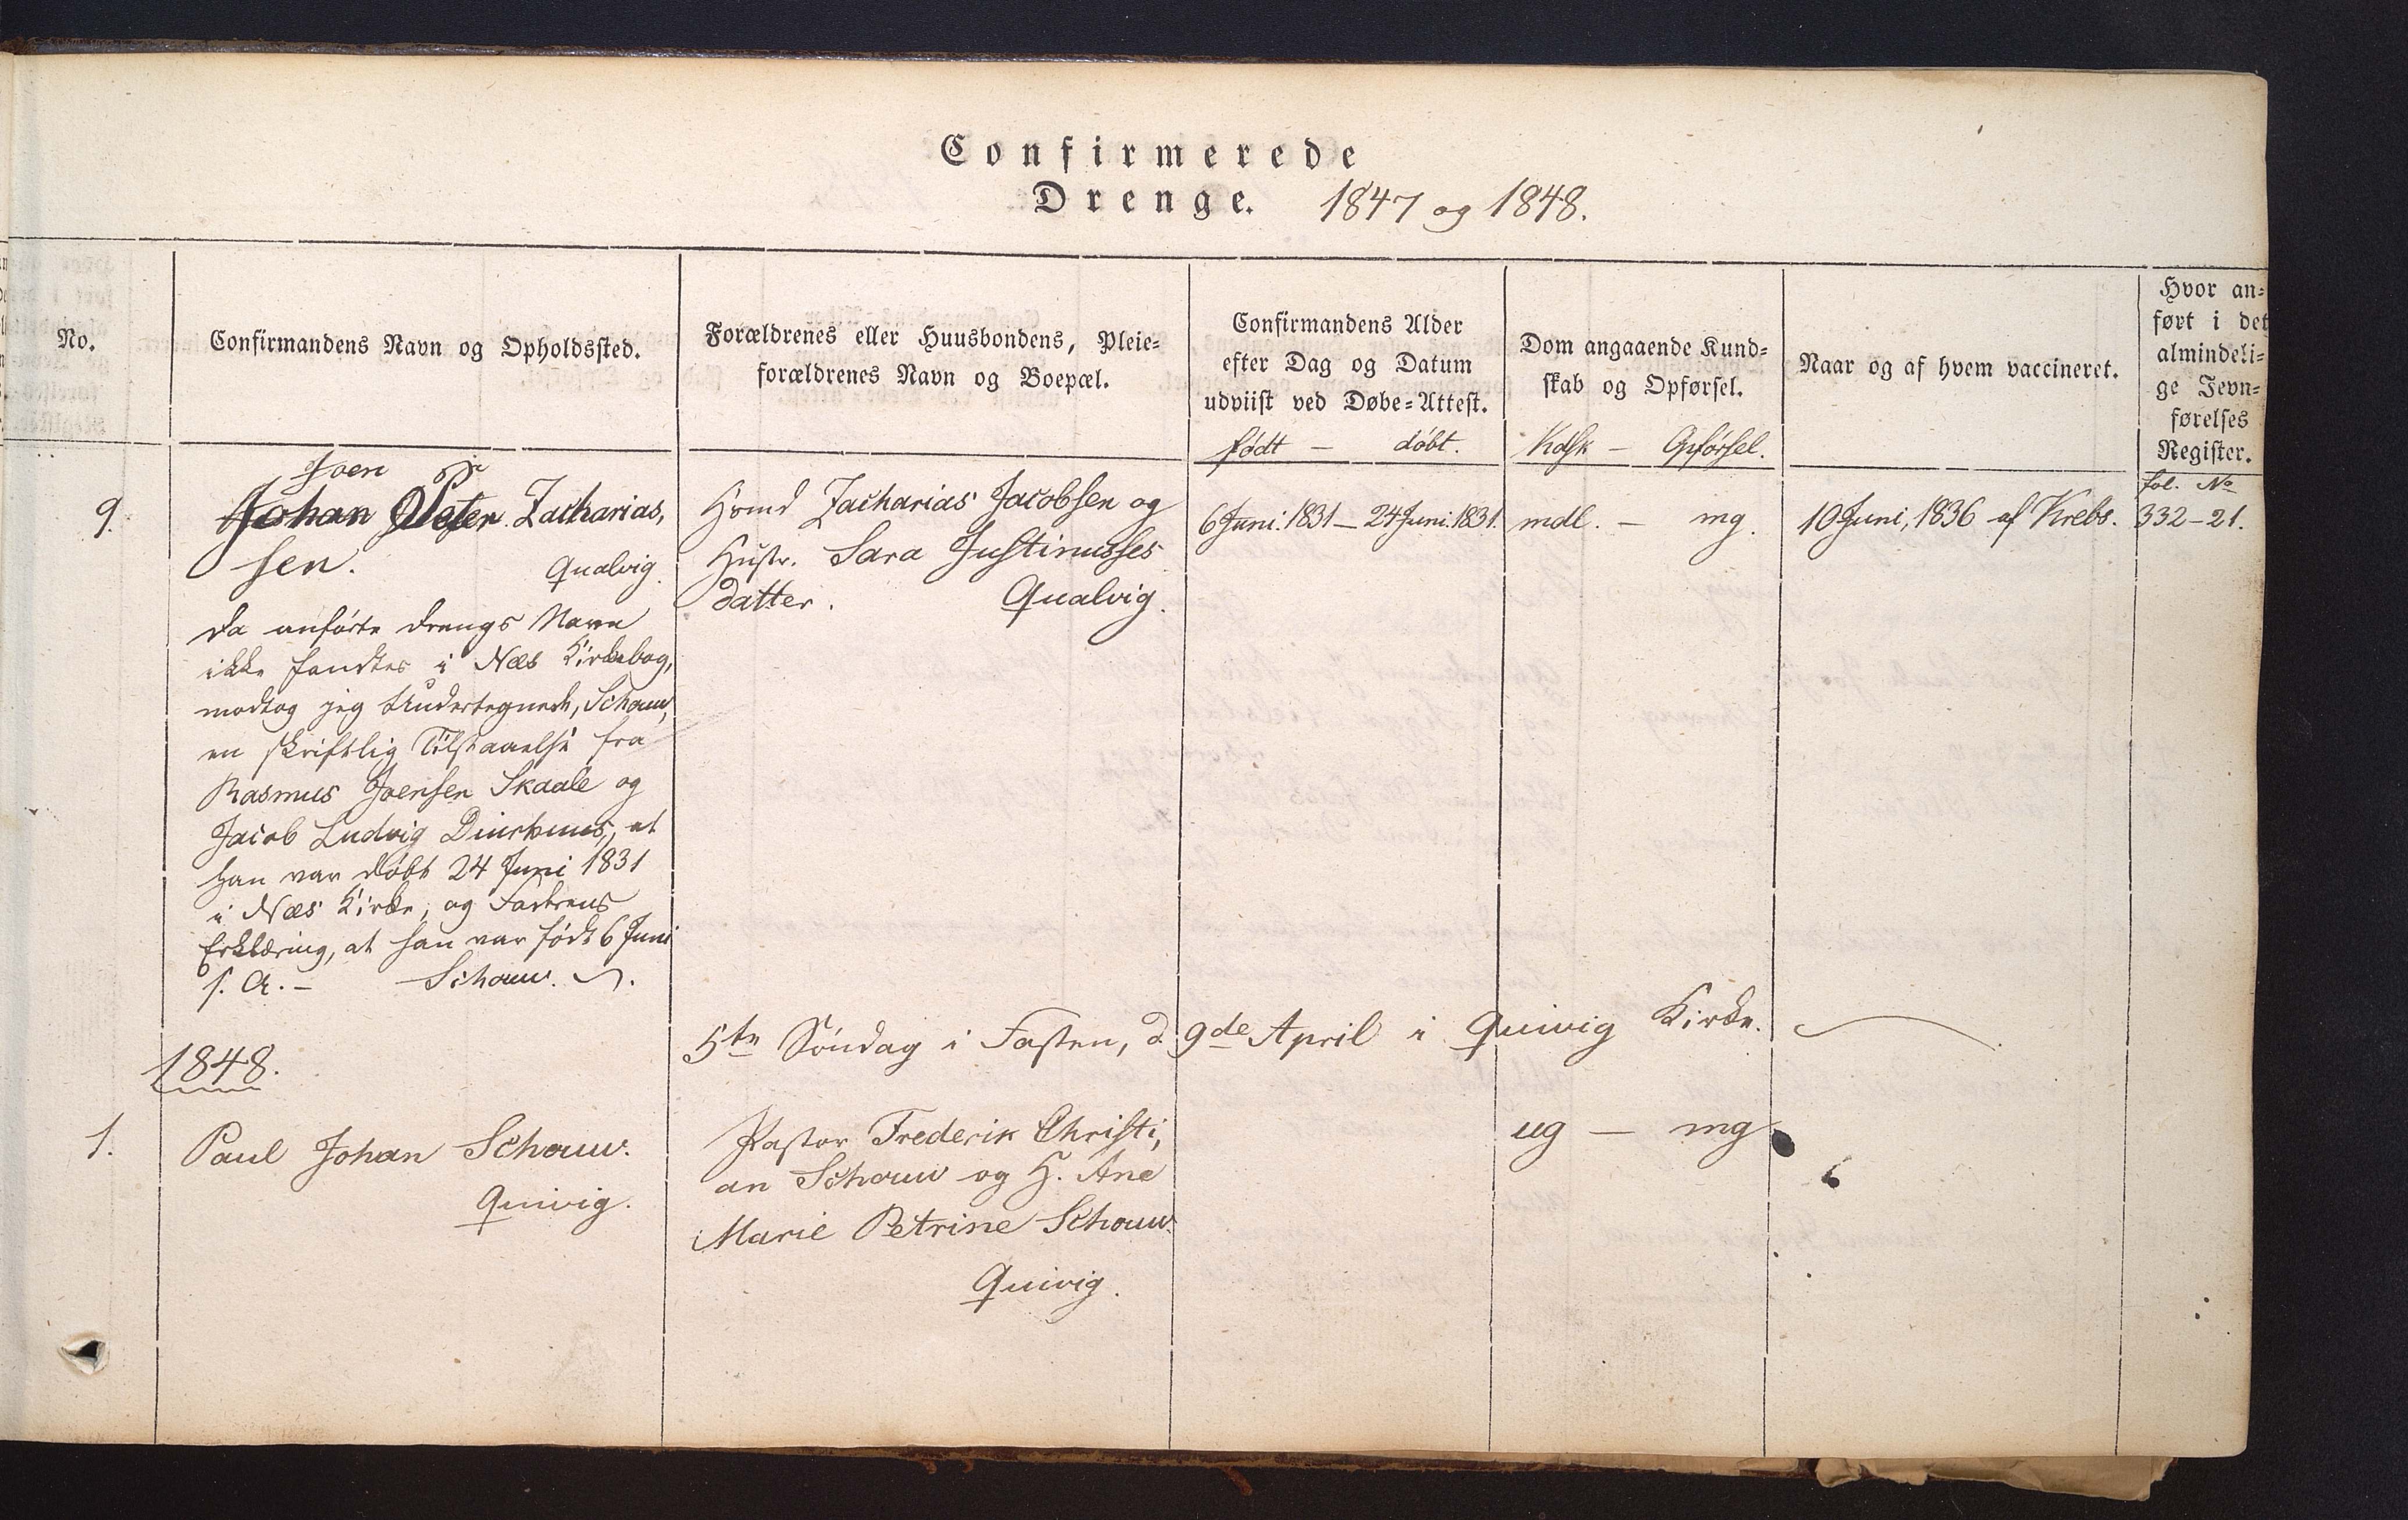 Confirmerede
Drenge. 1847 og 1848.
No.
Confirmandens Navn og Opholdssted.
Forældrenes eller Huusbondens, Pleie=
forældrenes Navn og Boepæl.
Confirmandens Alder
efter Dag og Datum
udviist ved Døbe=Attest.
født — døbt.
Dom angaaende Kund=
skab og Opførsel.
Kdsk — Opførsel.
Naar og af hvem vaccineret.
Hvor an=
ført i det
almindeli=
ge Jevn=
førelses
Register.
fol. No
9.
Joen
Johan Peter Zacharias,
sen.
Qualvig.
Da anførte Drengs Navn
ikke fandtes i Næs Kirkebog,
modtog jeg Undertegnede, Schouw,
en skriftlig Tilstaaelse fra
Rasmus Joensen Skaale og
Jacob Ludvig, at
han var døbt 24 Juni 1831
i Næs Kirke, og Faderens
Erklæring, at han var født 6 Juni
s. A. — Schouw.
Hmd Zacharias Jacobsen og
Hustr. Sara Justinusses
datter. Qualvig.
6 Juni. 1831 — 24 Juni. 1831.
mdl. — mg.
10 Juni, 1836 af Krebs.
332 — 21.
1848.
5te Søndag i Fasten, d 9de April i Quivig Kirke.
1.
Paul Johan Schouw.
Quivig.
Pastor Frederik Christi,
an Schouw og H. Ane
Marie Petrine Schouw.
Quivig.
ug — mg